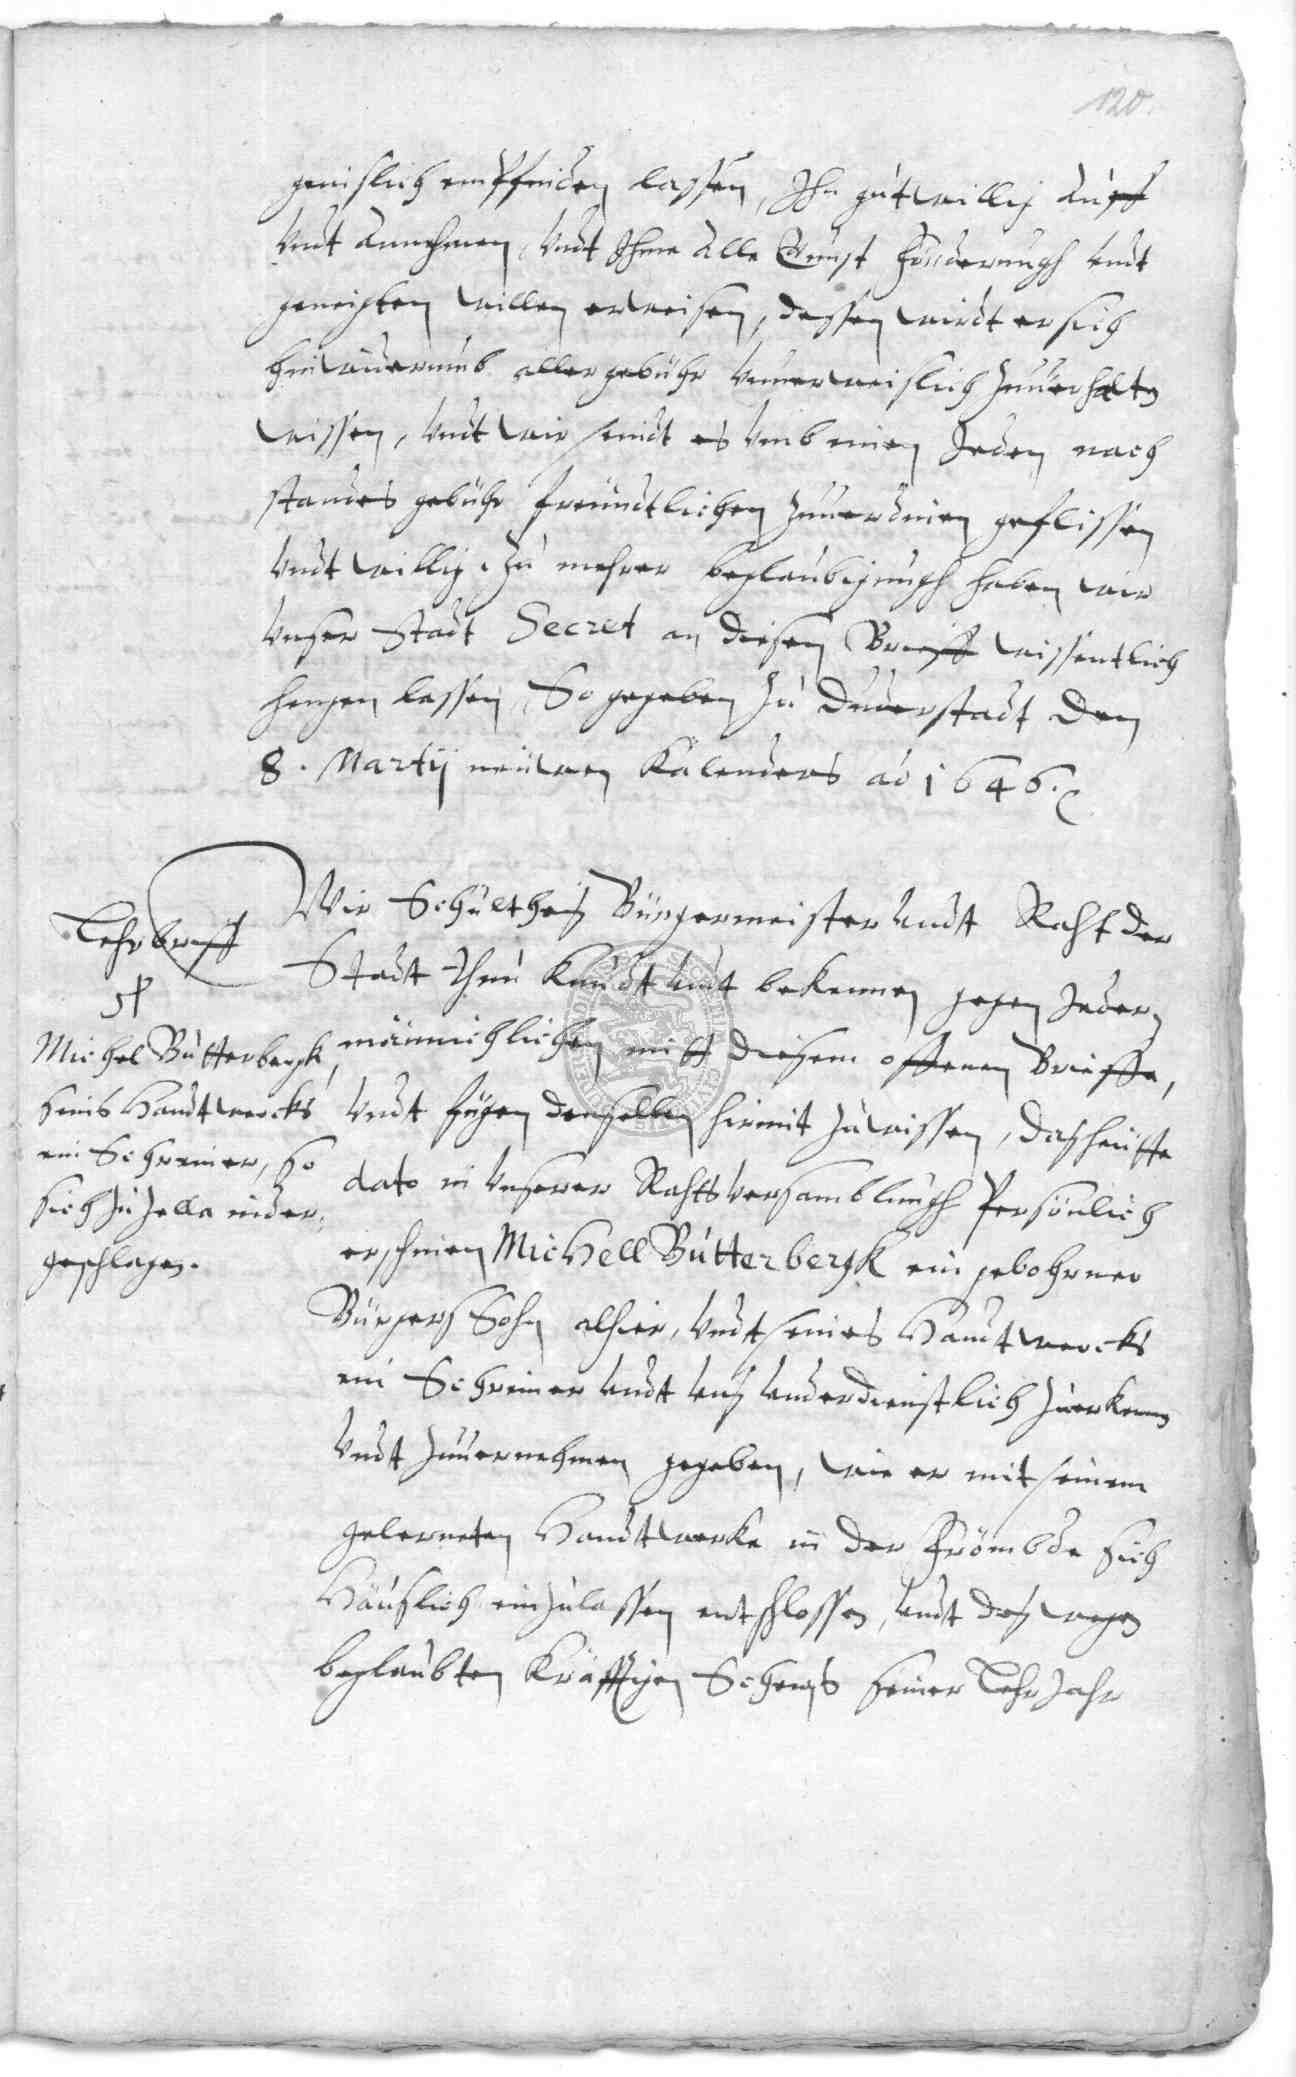 120.
genislich empfinden lassen, Ihn gutwillig auff
Vndt annehmen, Vndt Ihme alle Gunst fürderungh vndt
geneigten willen erweisen, dessen wirdt er sich
hinwiderumb aller gebühr vnverweislich zuuerhalten
wissen, Vndt wir seindt es vmb einen Jeden nach
standes gebühr freundtlichen zuuerdienen geflissen
Vndt willig. Zu mehrer beglaubigungh haben wir
Vnser Stadt Secret an diesen Brieff wissentlich
hengen lassen, So gegeben zu Duderstadt den
8. Martij neuwen Kalenders ao 1646.
Wir Schultheis Bürgermeister vndt Raht der
Stadt thun kundt vndt bekennen gegen Jeder
männichlichen mitt diesem offenen Brieffe,
Vndt fügen denselben hirmit zuwissen, das heutte
dato in Vnserer Rahts Versamblungh Persönlich
erschienen Michell Butterbergk ein gebohrner
Bürgers Sohn alhier, Vndt seines Handtwercks
ein Schreiner vndt vns vnderdienstlich zuerkennen
Vndt zuuernehmen gegeben, wie er mit seinem
gelerneten Handtwerke in der Frömbde sich
Häuslich einzulassen entschlossen, vndt deswegen
beglaubten kräfftigen Scheins seiner Lehr Jahr
Lehrbrieff
Michel Butterbergk,
seines Handtwercks
ein Schreiner, so
sich zu Zella nider-
geschlagen.